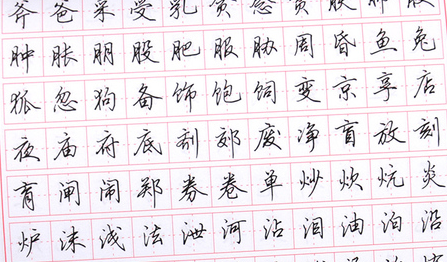 斧爸采受乳贪念贫肤肺肢
肿胀朋股肥服胁周昏鱼兔
狐忽狗备饰饱饲变京享店
夜庙府底剂郊废净盲放刻
育闸闹郑券卷单炒炊炕炎
炉沫浅法泄河沾泪油泊沿